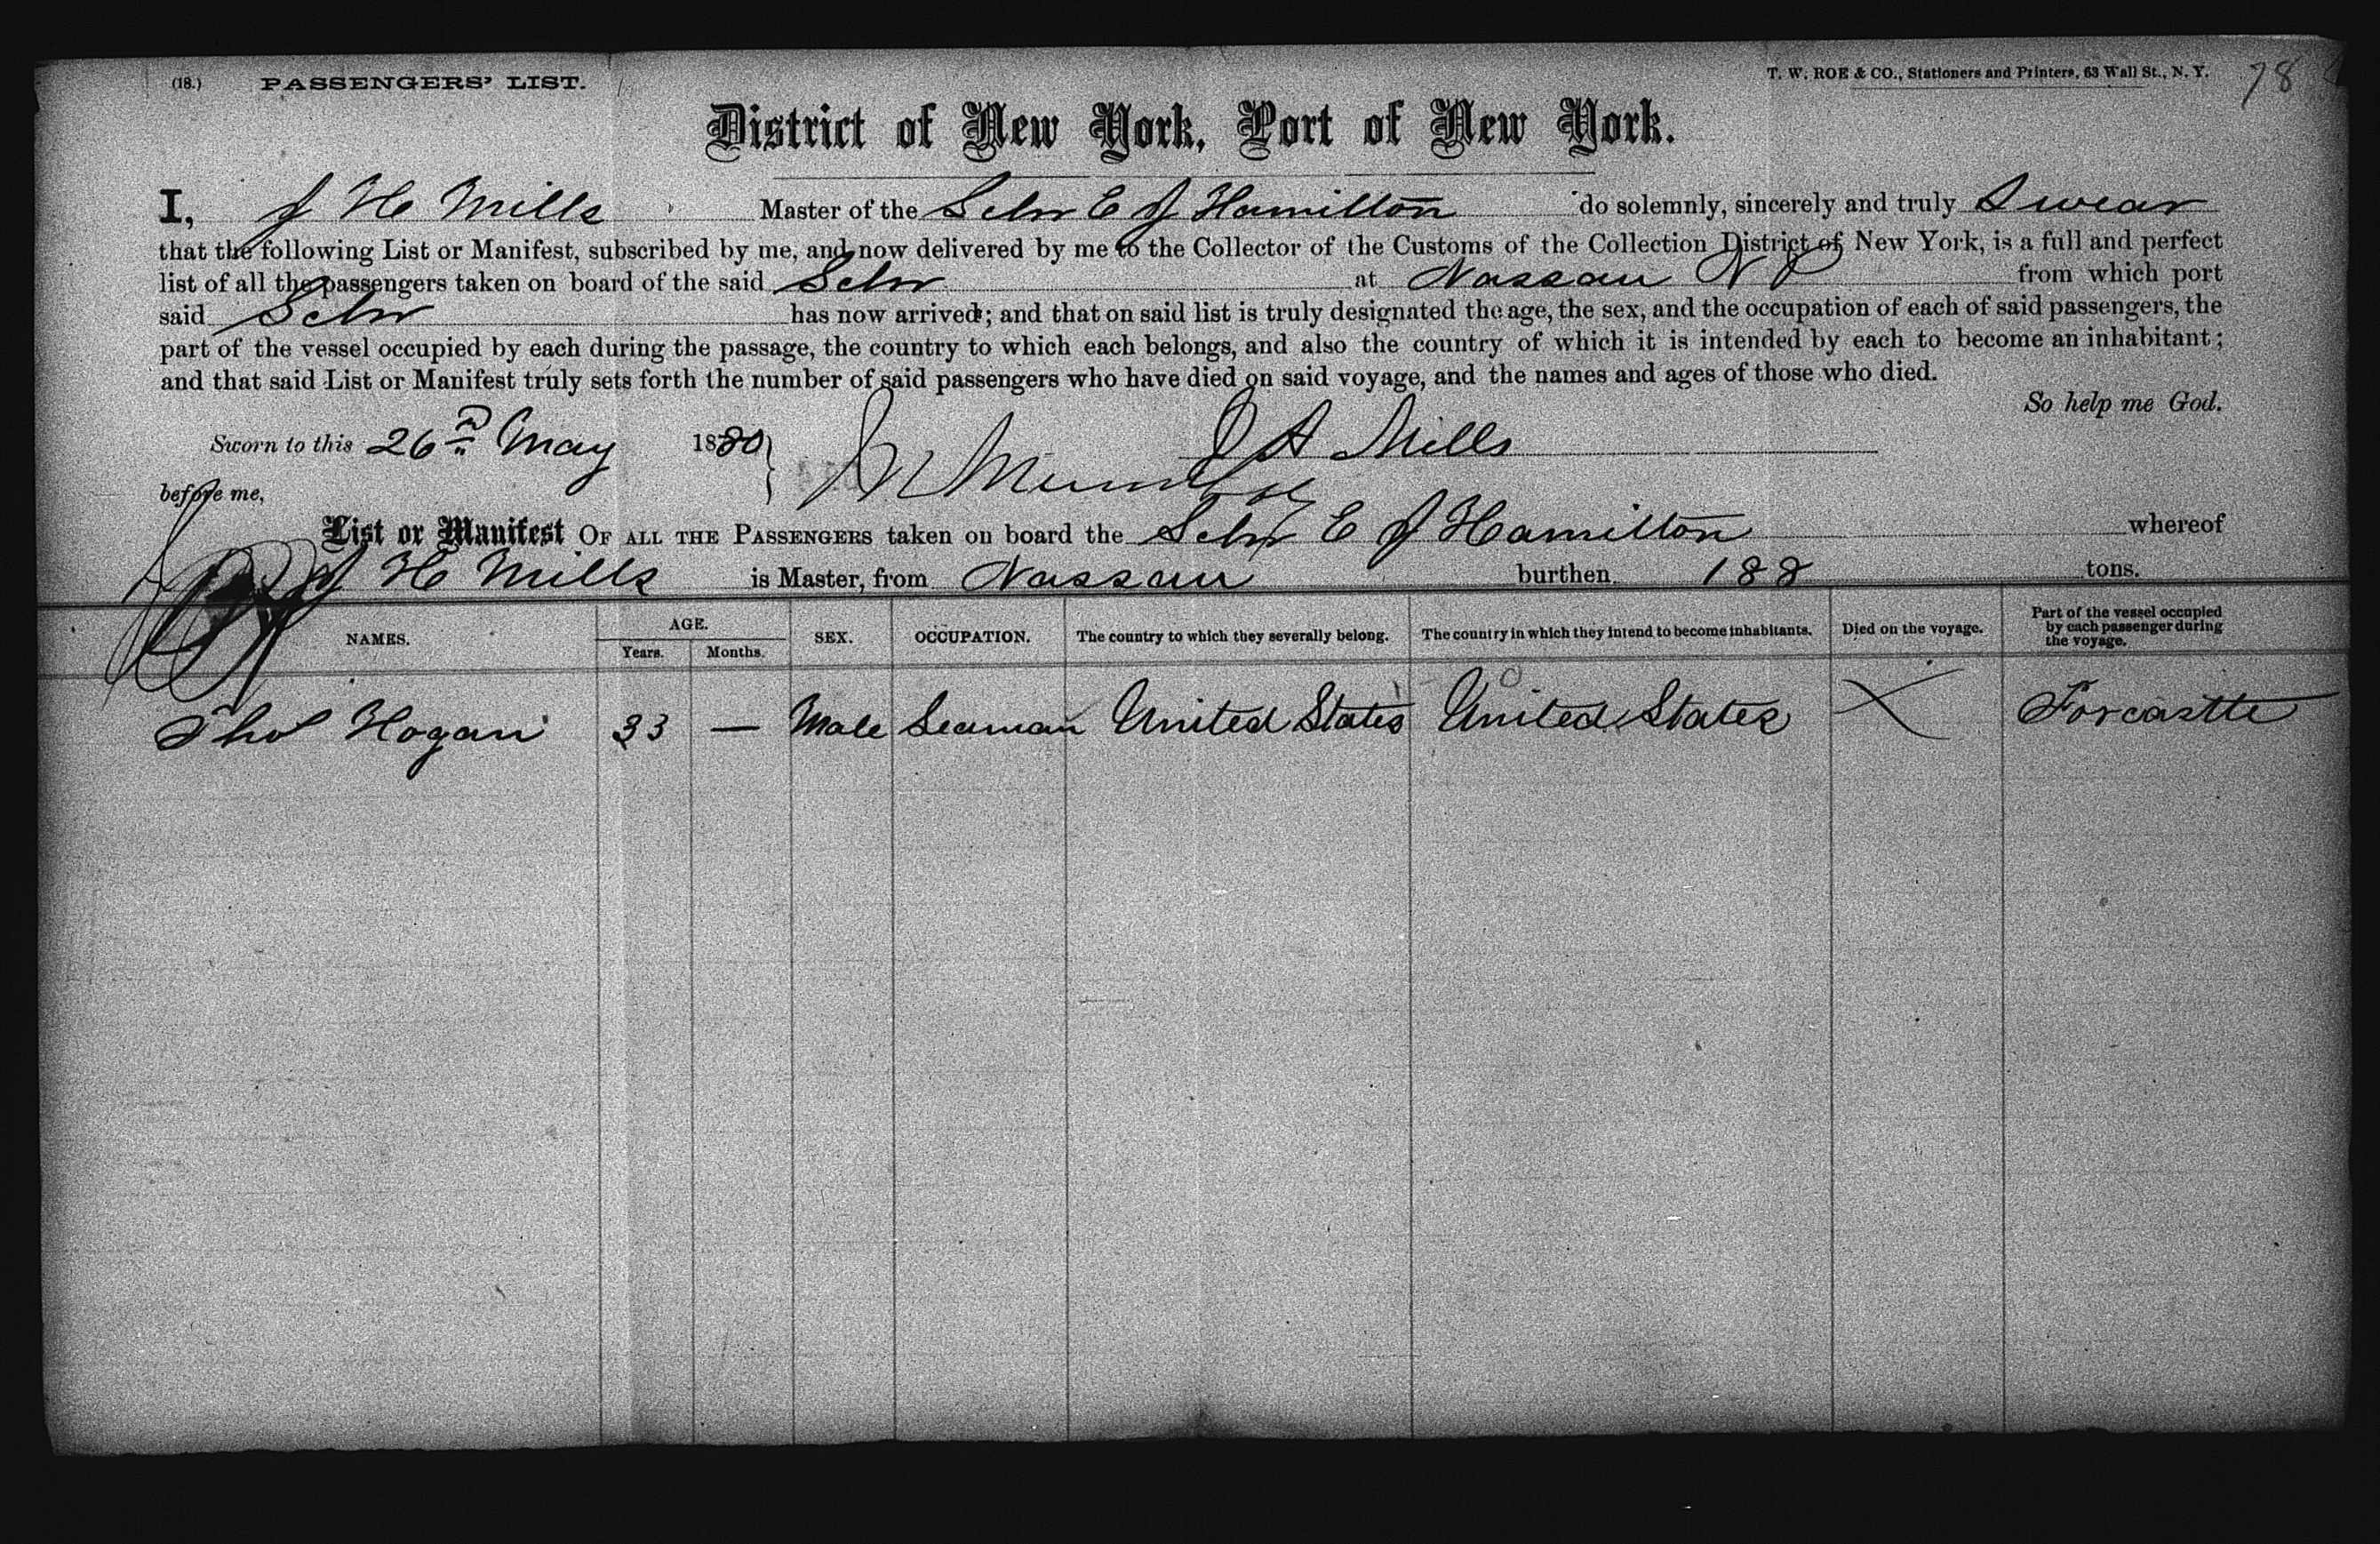 (18.) PASSENGERS' LIST.
T. W. ROE & CO., Stationers and Printers, 63 Wall St., N. Y.
78
District of New York, Port of New York.
I, J H Mills Master of the Schr E J Hamilton do solemnly, sincerely and truly Swear
that the following List or Manifest, subscribed by me, and now delivered by me to the Collector of the Customs of the Collection District of New York, is a full and perfect
list of all the passengers taken on board of the said Schr at Nassau N P from which port
said Schr has now arrived; and that on said list is truly designated the age, the sex, and the occupation of each of said passengers, the
part of the vessel occupied by each during the passage, the country to which each belongs, and also the country of which it is intended by each to become an inhabitant;
and that said List or Manifest truly sets forth the number of said passengers who have died on said voyage, and the names and ages of those who died.
So help me God.
Sworn to this 26 May 1880 J H Mills
before me,
List or Manifest OF ALL THE PASSENGERS taken on board the Schr E J Hamilton whereof
J H Mills is Master, from Nassau burthen 188 tons.
NAMES. AGE. Years. Months. SEX. OCCUPATION. The country to which they severally belong. The country in which they intend to become inhabitants. Died on the voyage. Part of the vessel occupied by each passenger during the voyage.
Thos Hogan 33 — Male Seaman United States United States Forcastle